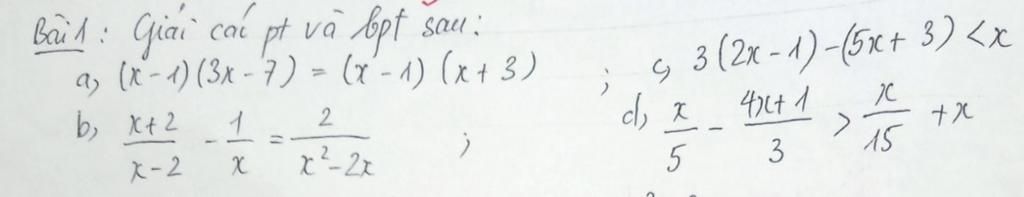 Bài 1: Giải các pt và bpt sau:
a, (x-1)(3x-7) = (x-1)(x+3) ; c, 3(2x-1)-(5x+3) < x
b, \frac{x+2}{x-2} - \frac{1}{x} = \frac{2}{x^2-2x} ; d, \frac{x}{5} - \frac{4x+1}{3} > \frac{x}{15} + x